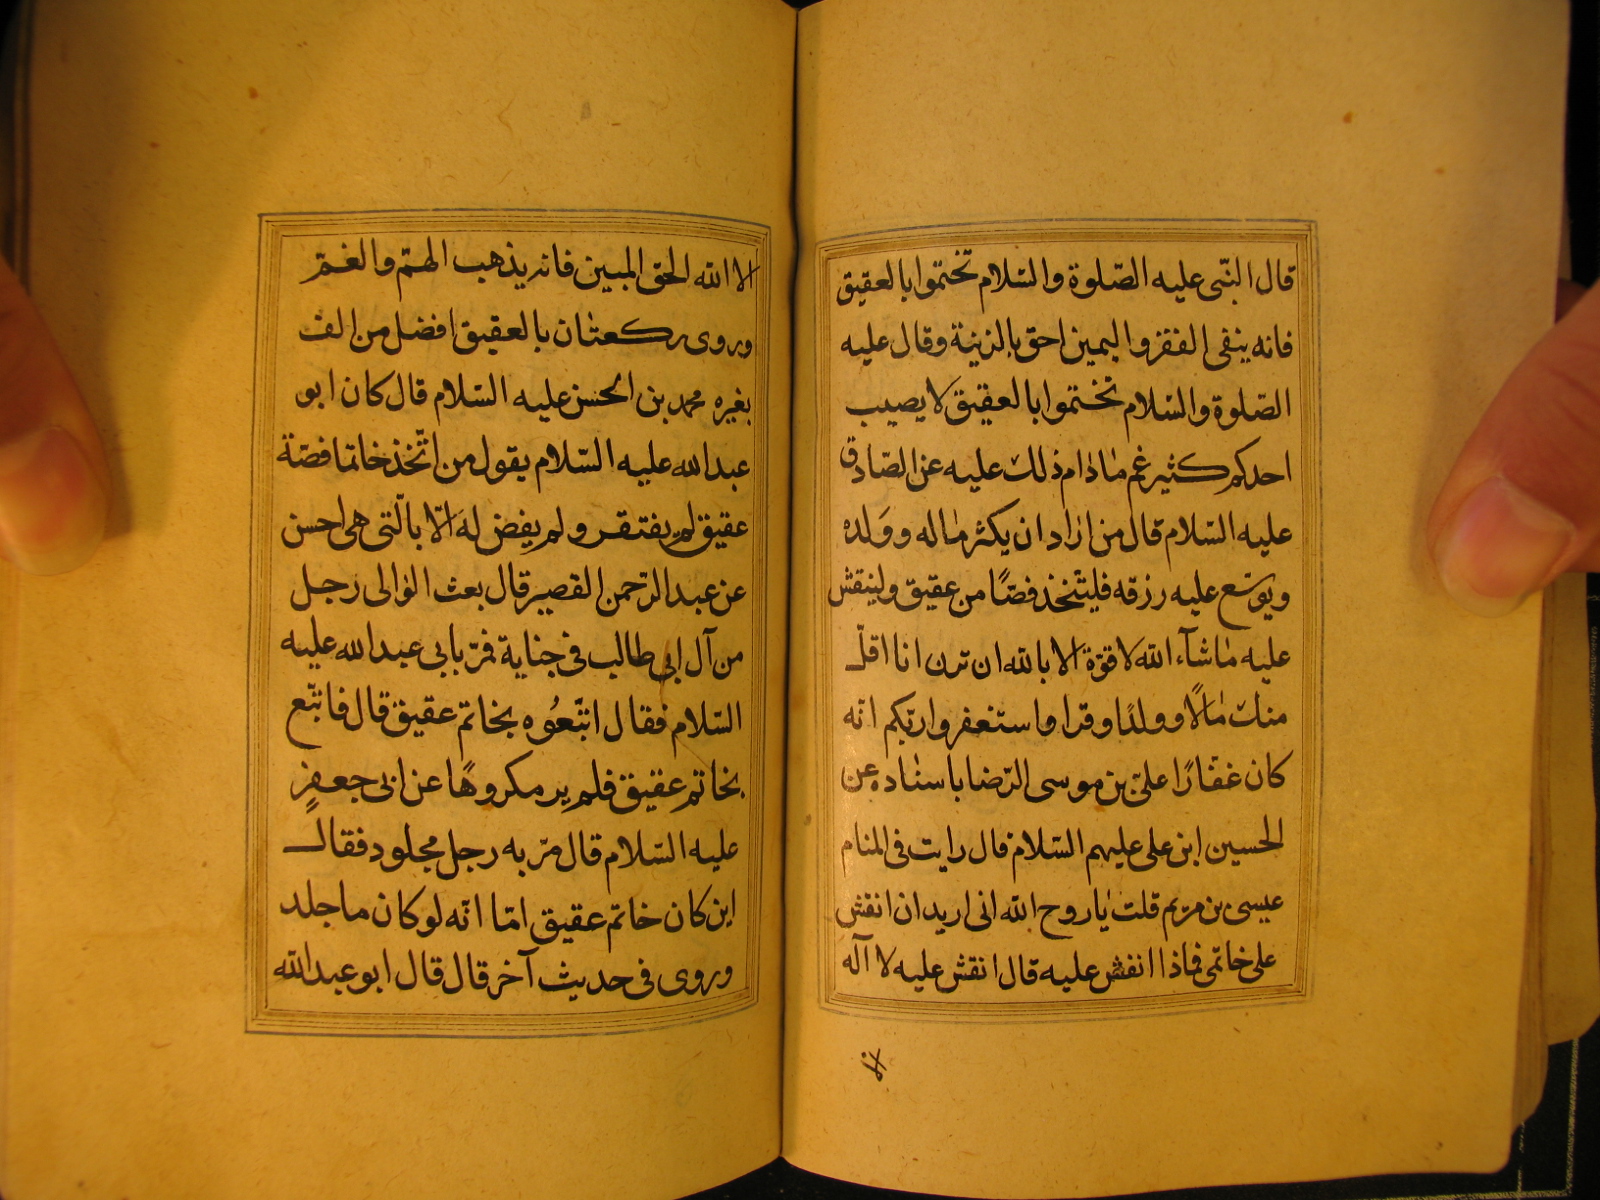 قال النّبى عليه الصّلوة والسّلام تختموا بالعقيق
فانه ينفى الفقر واليمين احق بالزينة وقال عليه
الصّلوة والسّلام تختموا بالعقيق لا يصيب
احدكم كثير غم مادام ذلك عليه عن الصّادق
عليه السّلام قال من اراد ان يكثر ماله وولده
ويوسّع عليه رزقه فليتّخذ فصّا من عقيق ولينقش
عليه ماشآء الله لا قوّة الا بالله ان ترن انا اقلّ
منك مالًا وولدًا وقرا واستغفروا ربّكم انّه
كان غفّارًا علىّ بن موسى الرّضا باسناده عن
الحسين ابن على عليهم السّلام قال رايت فى المنام
عيسى بن مريم قلت يا روح الله انى اريد ان انقش
على خاتمى فماذا انقش عليه قال انقش عليه لا آله
الا
الا الله الحق المبين فانه يذهب الهمّ والغمّ
وروى ركعتان بالعقيق افضل من الف
بغيره محمد بن الحسن عليه السّلام قال كان ابو
عبد الله عليه السّلام يقول من اتّخذ خاتما فصّة
عقيق لم يفتقر ولم يقض له الّا بالّتى هى احسن
عن عبد الرّحمن القصير قال بعث الوالى رجل
من آل ابى طالب فى جناية فمرّ بابى عبد الله عليه
السّلام فقال اتّبعُوه بخاتم عقيق قال فاتّبع
بخاتم عقيق فلم ير مكروهًا عن ابى جعفرٍ
عليه السّلام قال مرّ به رجل مجلود فقال
اين كان خاتم عقيق امّا انّه لو كان ماجلد
وروى فى حديث آخر قال قال ابو عبد الله